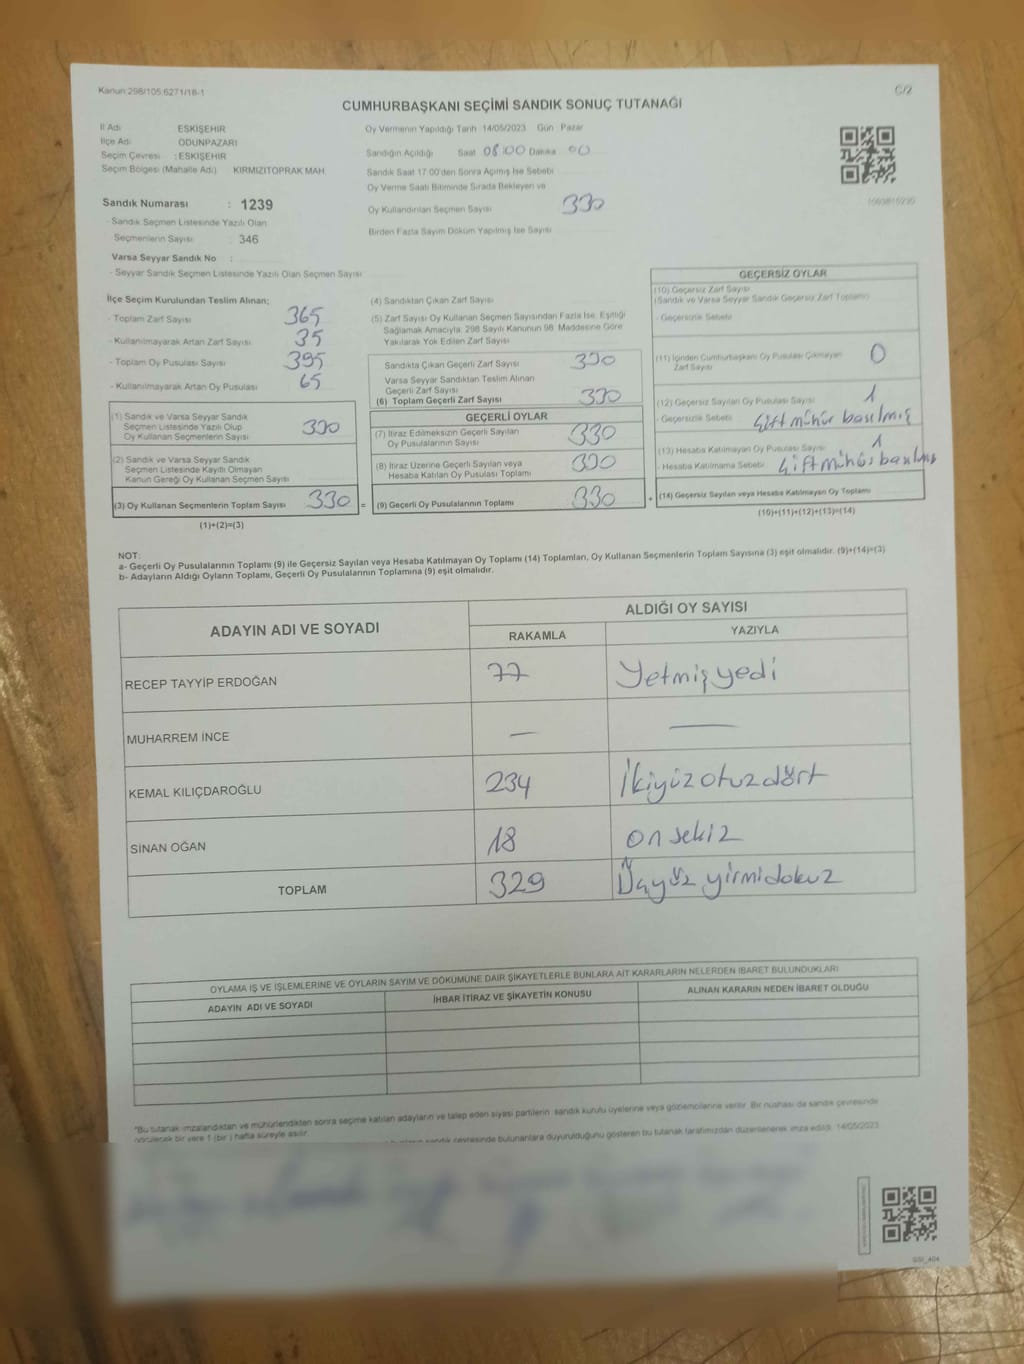 Kanun:298/105;6271/18-1
C/2
CUMHURBAŞKANI SEÇİMİ SANDIK SONUÇ TUTANAĞI
İl Adı ESKİŞEHİR
İlçe Adı ODUNPAZARI
Seçim Çevresi : ESKİŞEHİR
Seçim Bölgesi (Mahalle Adı) KIRMIZITOPRAK MAH.
Sandık Numarası : 1239
- Sandık Seçmen Listesinde Yazılı Olan
Seçmenlerin Sayısı 346
Varsa Seyyar Sandık No :
- Seyyar Sandık Seçmen Listesinde Yazılı Olan Seçmen Sayısı
Oy Vermenin Yapıldığı Tarih 14/05/2023 Gün Pazar
Sandığın Açıldığı Saat 08:00 Dakika 00
Sandık Saat 17:00'den Sonra Açılmış İse Sebebi
Oy Verme Saati Bitiminde Sırada Bekleyen ve
Oy Kullandırılan Seçmen Sayısı 330
Birden Fazla Sayım Döküm Yapılmış İse Sayısı
İlçe Seçim Kurulundan Teslim Alınan;
- Toplam Zarf Sayısı 365
- Kullanılmayarak Artan Zarf Sayısı 35
- Toplam Oy Pusulası Sayısı 395
- Kullanılmayarak Artan Oy Pusulası 65
(1) Sandık ve Varsa Seyyar Sandık
Seçmen Listesinde Yazılı Olup
Oy Kullanan Seçmenlerin Sayısı 330
(2) Sandık ve Varsa Seyyar Sandık
Seçmen Listesinde Kayıtlı Olmayan
Kanun Gereği Oy Kullanan Seçmen Sayısı
(3) Oy Kullanan Seçmenlerin Toplam Sayısı 330 =
(1)+(2)=(3)
(4) Sandıktan Çıkan Zarf Sayısı
(5) Zarf Sayısı Oy Kullanan Seçmen Sayısından Fazla İse, Eşitliği
Sağlamak Amacıyla, 298 Sayılı Kanunun 98. Maddesine Göre
Yakılarak Yok Edilen Zarf Sayısı
Sandıkta Çıkan Geçerli Zarf Sayısı 330
Varsa Seyyar Sandıktan Teslim Alınan
Geçerli Zarf Sayısı
(6) Toplam Geçerli Zarf Sayısı 330
GEÇERLİ OYLAR
(7) İtiraz Edilmeksizin Geçerli Sayılan
Oy Pusulalarının Sayısı 330
(8) İtiraz Üzerine Geçerli Sayılan veya
Hesaba Katılan Oy Pusulası Toplamı 330
(9) Geçerli Oy Pusulalarının Toplamı 330 +
GEÇERSİZ OYLAR
(10) Geçersiz Zarf Sayısı
(Sandık ve Varsa Seyyar Sandık Geçersiz Zarf Toplamı)
- Geçersizlik Sebebi
(11) İçinden Cumhurbaşkanı Oy Pusulası Çıkmayan
Zarf Sayısı 0
(12) Geçersiz Sayılan Oy Pusulası Sayısı 1
- Geçersizlik Sebebi Çift mühür basılmış
(13) Hesaba Katılmayan Oy Pusulası Sayısı 1
- Hesaba Katılmama Sebebi Çift mühür basılmış
(14) Geçersiz Sayılan veya Hesaba Katılmayan Oy Toplamı
(10)+(11)+(12)+(13)=(14)
NOT:
a- Geçerli Oy Pusulalarının Toplamı (9) ile Geçersiz Sayılan veya Hesaba Katılmayan Oy Toplamı (14) Toplamları, Oy Kullanan Seçmenlerin Toplam Sayısına (3) eşit olmalıdır. (9)+(14)=(3)
b- Adayların Aldığı Oyların Toplamı, Geçerli Oy Pusulalarının Toplamına (9) eşit olmalıdır.
ADAYIN ADI VE SOYADI
ALDIĞI OY SAYISI
RAKAMLA YAZIYLA
RECEP TAYYİP ERDOĞAN 77 Yetmişyedi
MUHARREM İNCE — —
KEMAL KILIÇDAROĞLU 234 İkiyüzotuzdört
SİNAN OĞAN 18 onsekiz
TOPLAM 329 Üçyüz yirmidokuz
OYLAMA İŞ VE İŞLEMLERİNE VE OYLARIN SAYIM VE DÖKÜMÜNE DAİR ŞİKAYETLERLE BUNLARA AİT KARARLARIN NELERDEN İBARET BULUNDUKLARI
ADAYIN ADI VE SOYADI İHBAR İTİRAZ VE ŞİKAYETİN KONUSU ALINAN KARARIN NEDEN İBARET OLDUĞU
*Bu tutanak imzalandıktan ve mühürlendikten sonra seçime katılan adayların ve talep eden siyasi partilerin sandık kurulu üyelerine veya gözlemcilerine verilir. Bir nüshası da sandık çevresinde
görülecek bir yere 1 (bir ) hafta süreyle asılır.
sandık çevresinde bulunanlara duyurulduğunu gösteren bu tutanak tarafımızdan düzenlenerek imza edildi. 14/05/2023